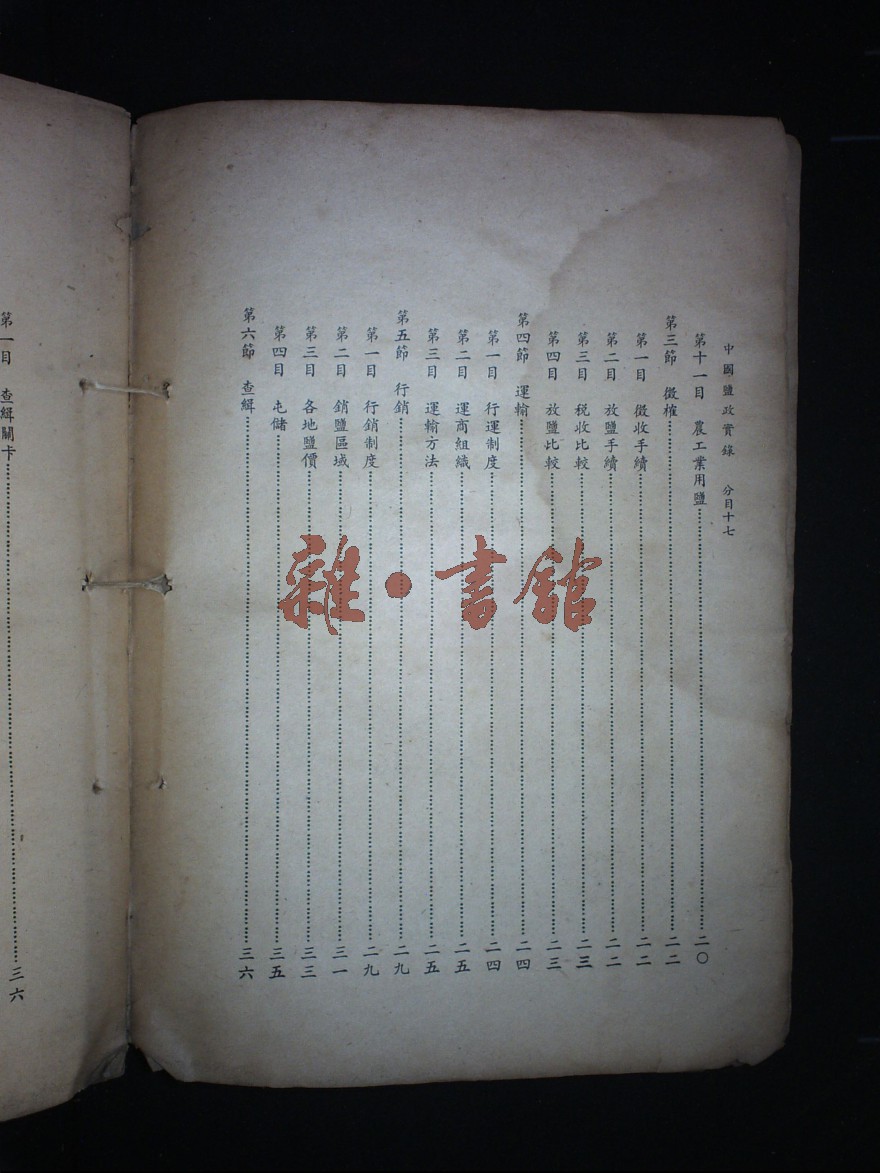 中國鹽政實錄 分目十七
第十一目 農工業用鹽 二〇
第三節 徵榷 二二
第一目 徵收手續 二二
第二目 放鹽手續 二二
第三目 稅收比較 二三
第四目 放鹽比較 二三
第四節 運輸 二四
第一目 行運制度 二四
第二目 運商組織 二五
第三目 運輸方法 二五
第五節 行銷 二九
第一目 行銷制度 二九
第二目 銷鹽區域 三一
第三目 各地鹽價 三三
第四目 屯儲 三五
第六節 查緝 三六
第一目 查緝關卡 三六
雜·書館